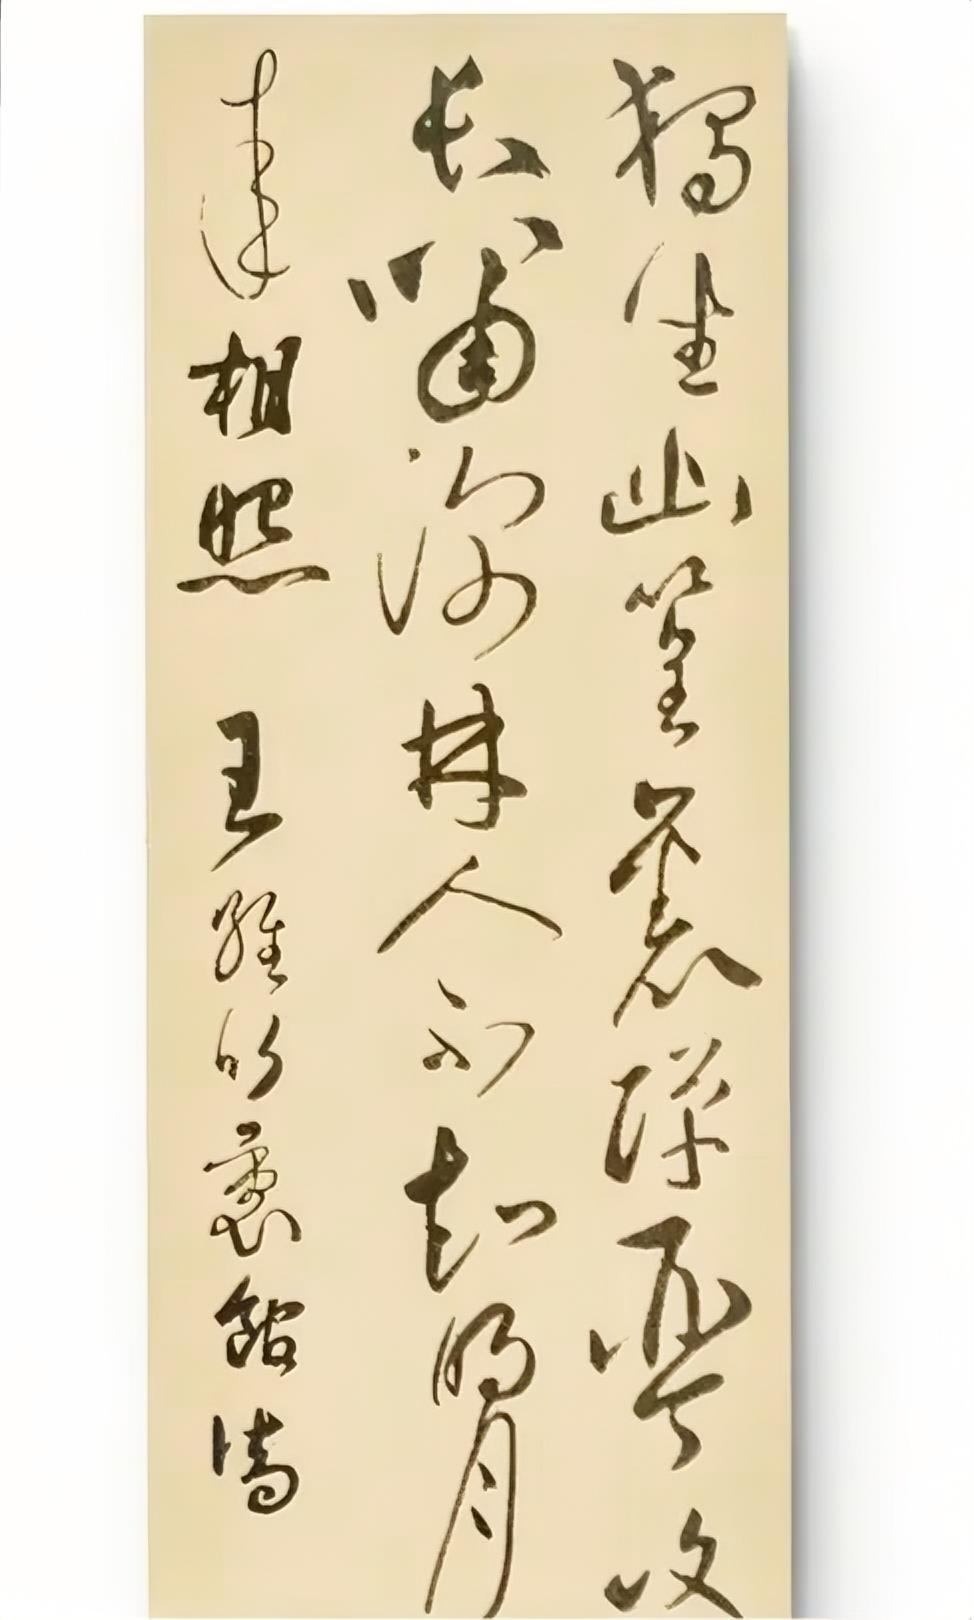 獨坐幽篁裏彈琴復
長嘯深林人不知明月
來相照 王維竹裏館詩